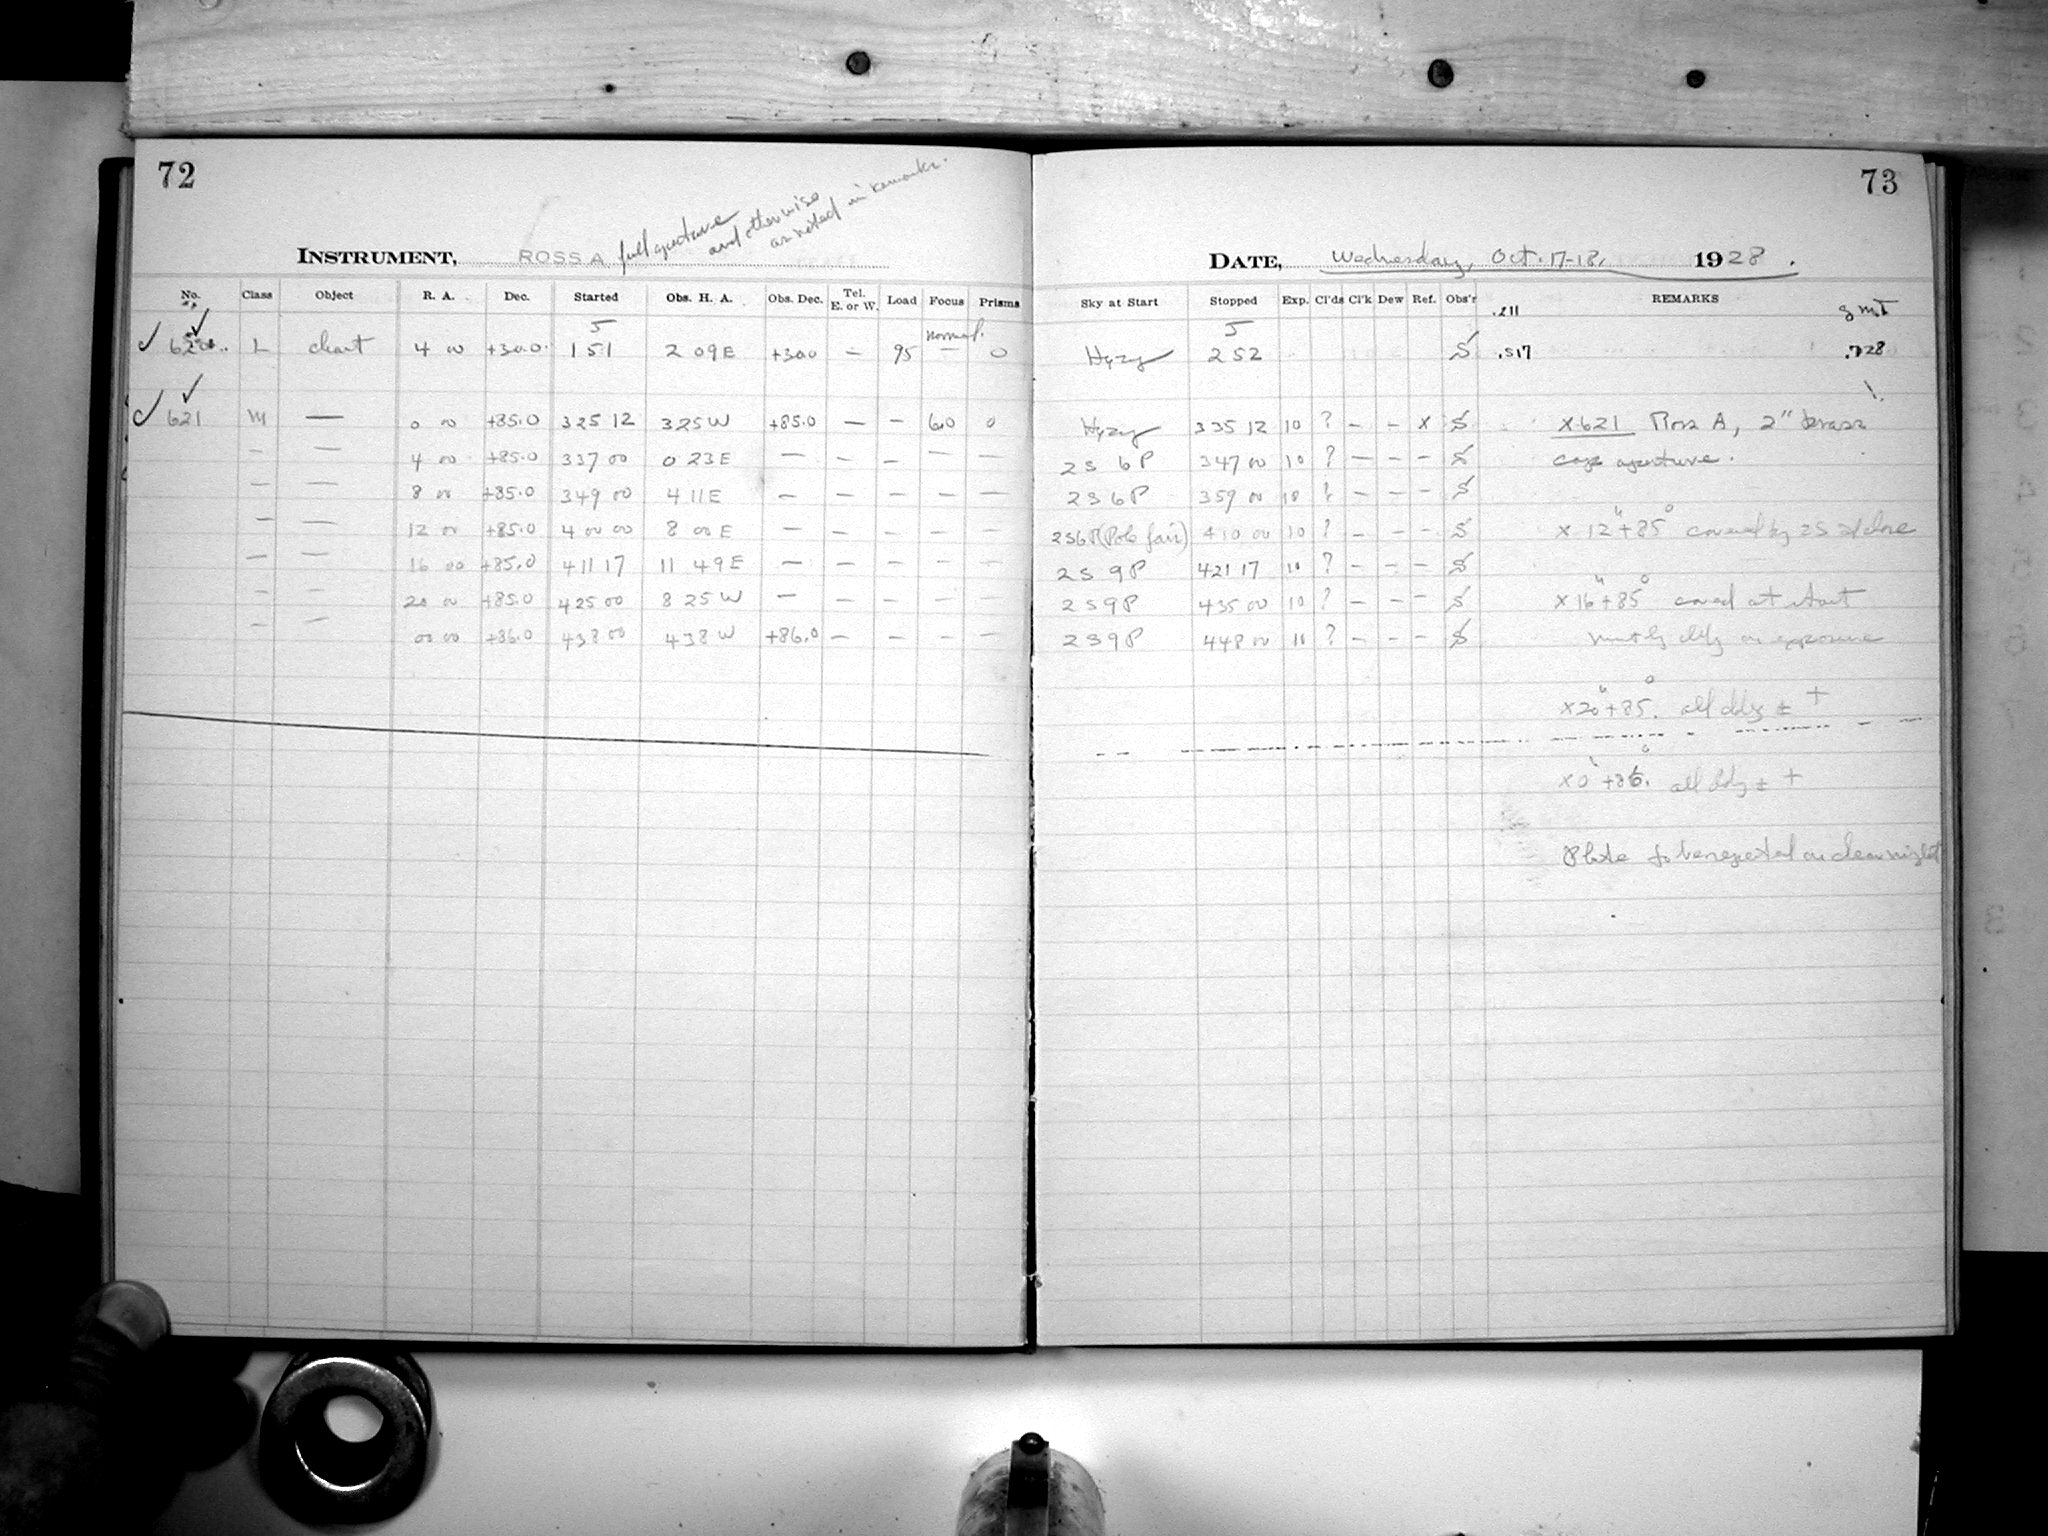 72
full aperture
and otherwise
as noted in remarks.
INSTRUMENT, ROSS A
No. Class Object R. A. Dec. Started Obs. H. A. Obs. Dec. Tel. E. or W. Load Focus Prisms
5 normal.
L chart 4 00 +30.0 1 51 2 09 E +30.0 — 95 — 0
621 M — 0 00 +85.0 3 25 12 3 25 W +85.0 — — 6.0 0
— — 4 00 +85.0 3 37 00 0 23 E — — — — —
— — 8 00 +85.0 3 49 00 4 11 E — — — — —
— — 12 00 +85.0 4 00 00 8 00 E — — — — —
— — 16 00 +85.0 4 11 17 11 49 E — — — — —
— — 20 00 +85.0 4 25 00 8 25 W — — — — —
— — 00 00 +86.0 4 38 00 4 38 W +86.0 — — — —
73
DATE, Wednesday, Oct. 17-18, 1928.
Sky at Start Stopped Exp. Cl'ds Cl'k Dew Ref. Obs'r REMARKS
.211 GMT
5
Hazy 2 52 S .517 .728
Hazy 3 35 12 10 ? — — x S x 621 Ross A, 2" brass
2 S 6 P 3 47 00 10 ? — — — S cap aperture.
2 S 6 P 3 59 00 10 ? — — — S
2 S 6 P (Pole fair) 4 10 00 10 ? — — — S x 12h +85° covered by 2S at close
2 S 9 P 4 21 17 10 ? — — — S
2 S 9 P 4 35 00 10 ? — — — S x 16h +85° cov'd at start
2 S 9 P 4 48 00 10 ? — — — S mostly cldy on exposure
x 20h +85°. all cldy ± +
x 0h +86°. all cldy ± +
Plate to be repeated on clear night